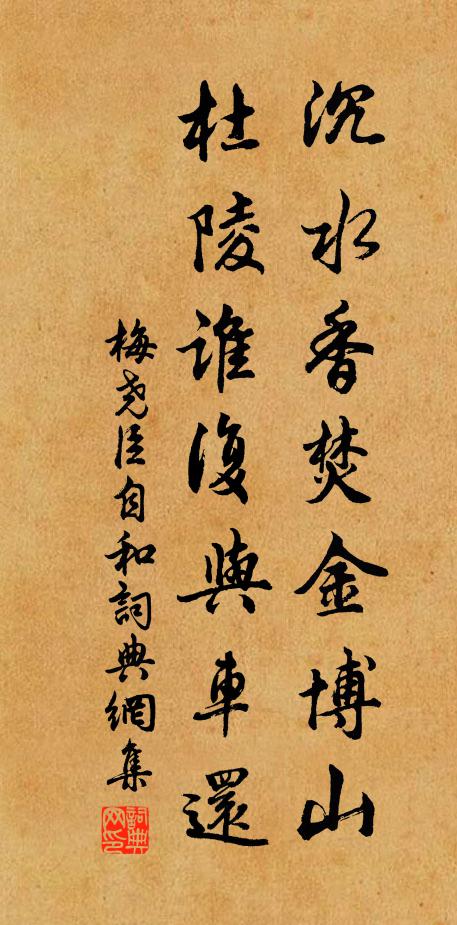 沉水香焚金博山
杜陵誰復與車還
梅尧臣自和詞典網集
詞典网印